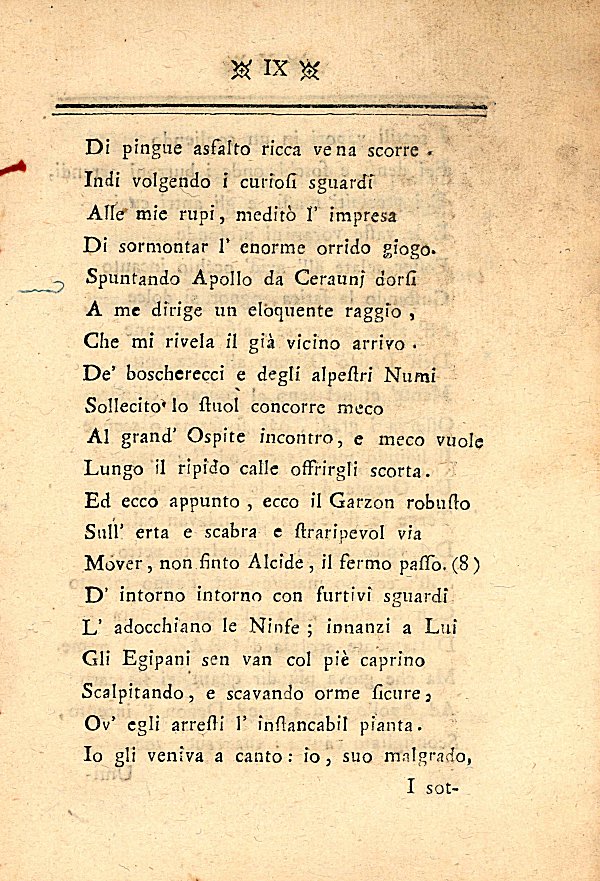 IX
Di pingue asfalto ricca vena scorre.
Indi volgendo i curiosi sguardi
Alle mie rupi, meditò l' impresa
Di sormontar l' enorme orrido giogo.
Spuntando Apollo da Ceraunj dorsi
A me dirige un eloquente raggio,
Che mi rivela il già vicino arrivo.
De' boscherecci e degli alpestri Numi
Sollecito lo stuol concorre meco
Al grand' Ospite incontro, e meco vuole
Lungo il ripido calle offrirgli scorta.
Ed ecco appunto, ecco il Garzon robusto
Sull' erta e scabra e straripevol via
Mover, non finto Alcide, il fermo passo. (8)
D' intorno intorno con furtivi sguardi
L' adocchiano le Ninfe; innanzi a Lui
Gli Egipani sen van col piè caprino
Scalpitando, e scavando orme sicure,
Ov' egli arresti l' instancabil pianta.
Io gli veniva a canto: io, suo malgrado,
I sot-